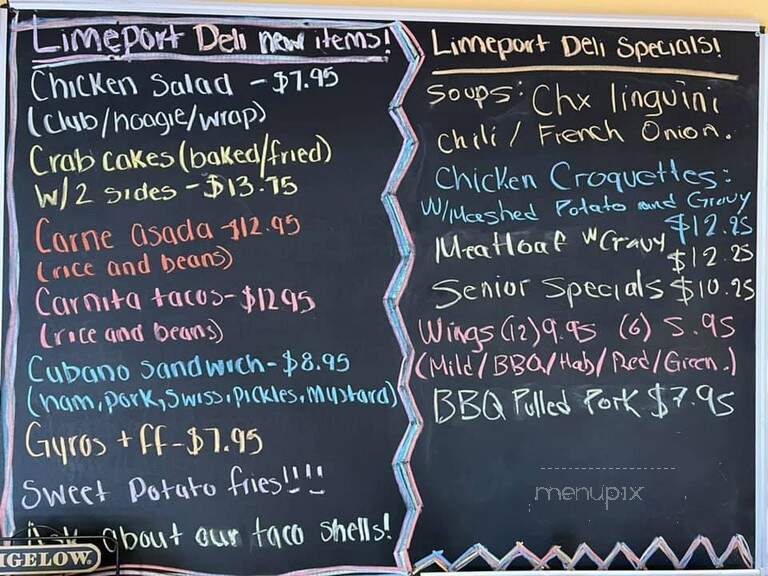 Limeport Deli new items!
Chicken Salad - $7.95
(club/hoagie/wrap)
Crab cakes (baked/fried)
W/2 sides - $13.75
Carne asada - $12.95
(rice and beans)
Carnita tacos - $12.95
(rice and beans)
Cubano sandwich - $8.95
(ham, pork, swiss, pickles, mustard)
Gyros + ff - $7.95
Sweet Potato fries!!!!
Ask about our taco shells!
IGELOW
Limeport Deli Specials!
Soups: Chx linguini
Chili / French Onion.
Chicken Croquettes:
W/Mashed Potato and Gravy
$12.25
Meatloaf w Gravy
$12.25
Senior Specials $10.25
Wings (12) 9.95 (6) 5.95
(Mild/BBQ/Hab/Red/Green.)
BBQ Pulled Pork $7.95
menupix